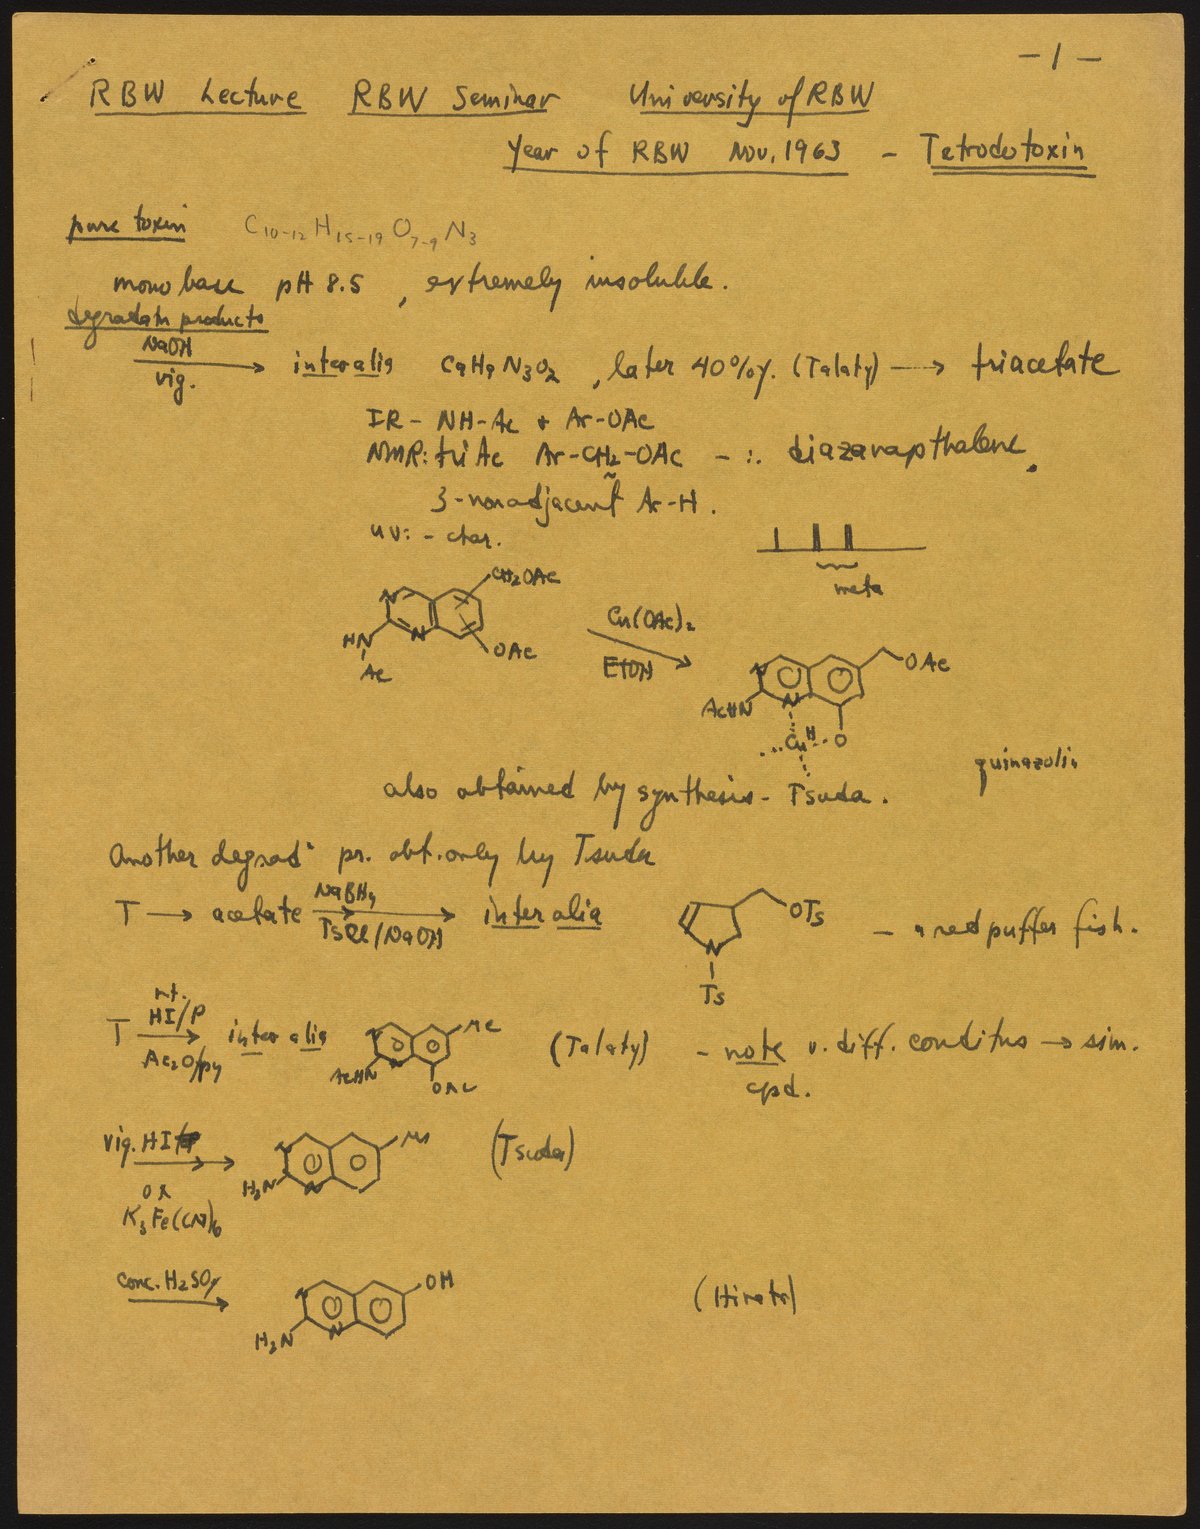 - 1 -
RBW Lecture RBW Seminar University of RBW
Year of RBW Nov. 1963 - Tetrodotoxin
pure toxin C10-12 H15-19 O7-9 N3
mono base pH 8.5 , extremely insoluble.
degradatn products
NaOH
vig.
inter alia C9H9N3O2 , later 40% y. (Talaty) → triacetate
IR - NH-Ac + Ar-OAc
NMR: tri Ac Ar-CH2-OAc - ∴ diazanapthalene.
3-nonadjacent Ar-H.
uv: - char.
meta
CH2OAc
N
N
HN
Ac
OAc
Cu(OAc)2
EtOH
N
N
AcHN
OAc
Cu
O
quinazolin
also obtained by synthesis - Tsuda.
Another degrad. pr. obt. only by Tsuda
T → acetate NaBH4 TsCl/NaOH → inter alia
OTs
N
Ts
- red puffer fish.
T rt. HI/P Ac2O/py → inter alia
Me
AcHN
OAc
(Talaty) - note v. diff. conditns → sim.
cpd.
vig. HI
or
K3Fe(CN)6
H2N
N
Me
(Tsuda)
Conc. H2SO4
H2N
N
OH
(Hirata)